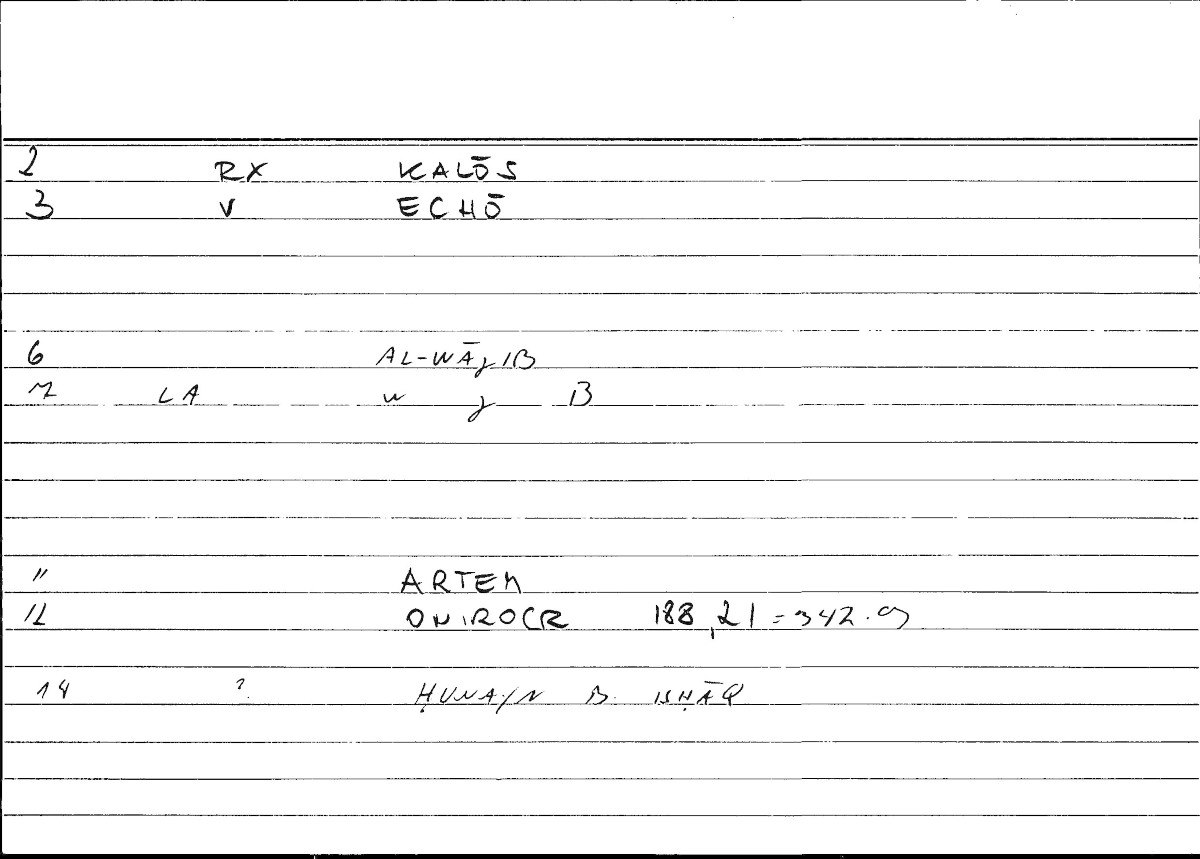 2 RX KALŌS
3 V ECHŌ
6 AL-WĀJIB
7 LA W J B
11 ARTEM
12 ONIROCR 188,21 = 342.9
14 ? ḤUNAYN B. ISḤĀQ